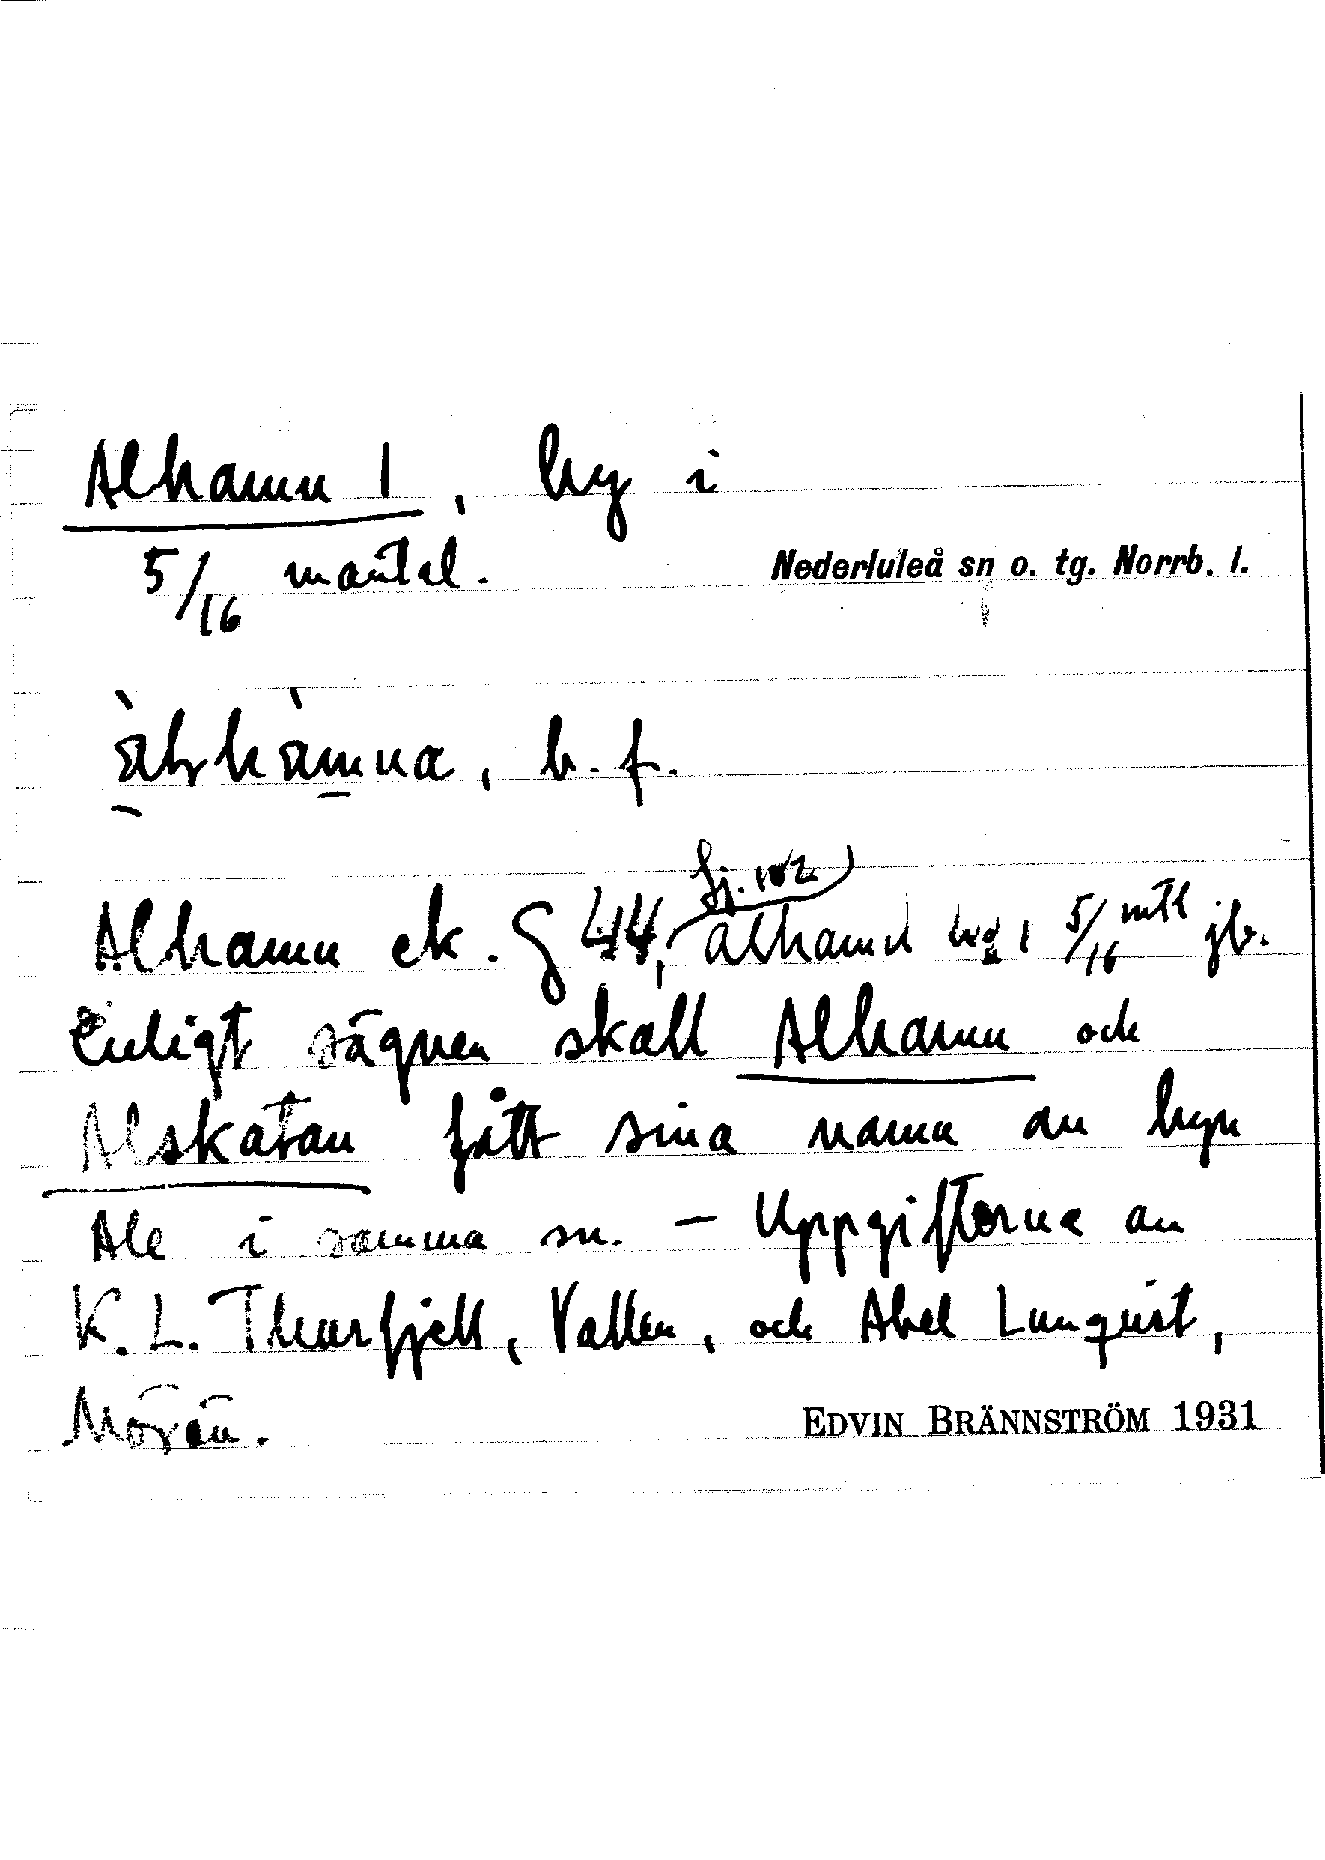 Alhamn 1, by i
5/16 mantal.
Nederluleå sn o. tg. Norrb. l.
b. f.
Alhamn ek. § 44, alhamn 1 5/16 mtl jb.
Enligt sägnen skall Alhamn och
Alskatan fått sina namn av byn
Ale i samma sn. – Uppgifterna av
K. L. Thurfjell, Vallen, och Abel Lunqvist,
Mörön.
EDVIN BRÄNNSTRÖM 1931